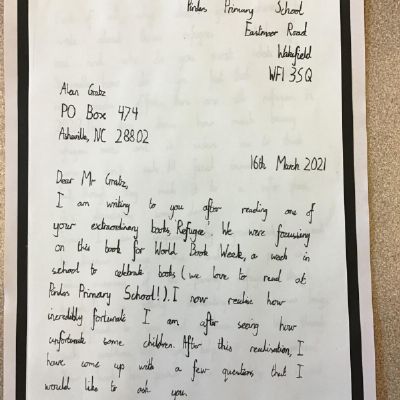 Pinders Primary School
Eastmoor Road
Wakefield
WF1 3SQ
Alan Gratz
PO Box 474
Asheville, NC 28802
16th March 2021
Dear Mr Gratz,
I am writing to you after reading one of
your extraordinary books, 'Refugee'. We were focussing
on this book for World Book Week, a week in
school to celebrate books (we love to read at
Pinders Primary School!). I now realise how
incredibly fortunate I am after seeing how
unfortunate some children. After this realisation, I
have come up with a few questions that I
would like to ask you.